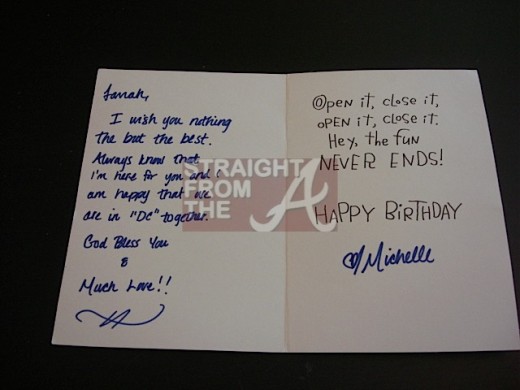 Farrah,
I wish you nothing
the but the best.
Always know that
I'm here for you and I
am happy that we
are in "DC" together.
God Bless You
&
Much Love!!
Open it, close it,
open it, close it.
Hey, the fun
NEVER ENDS!
HAPPY BIRTHDAY
Michelle
STRAIGHT
FROM
THE A